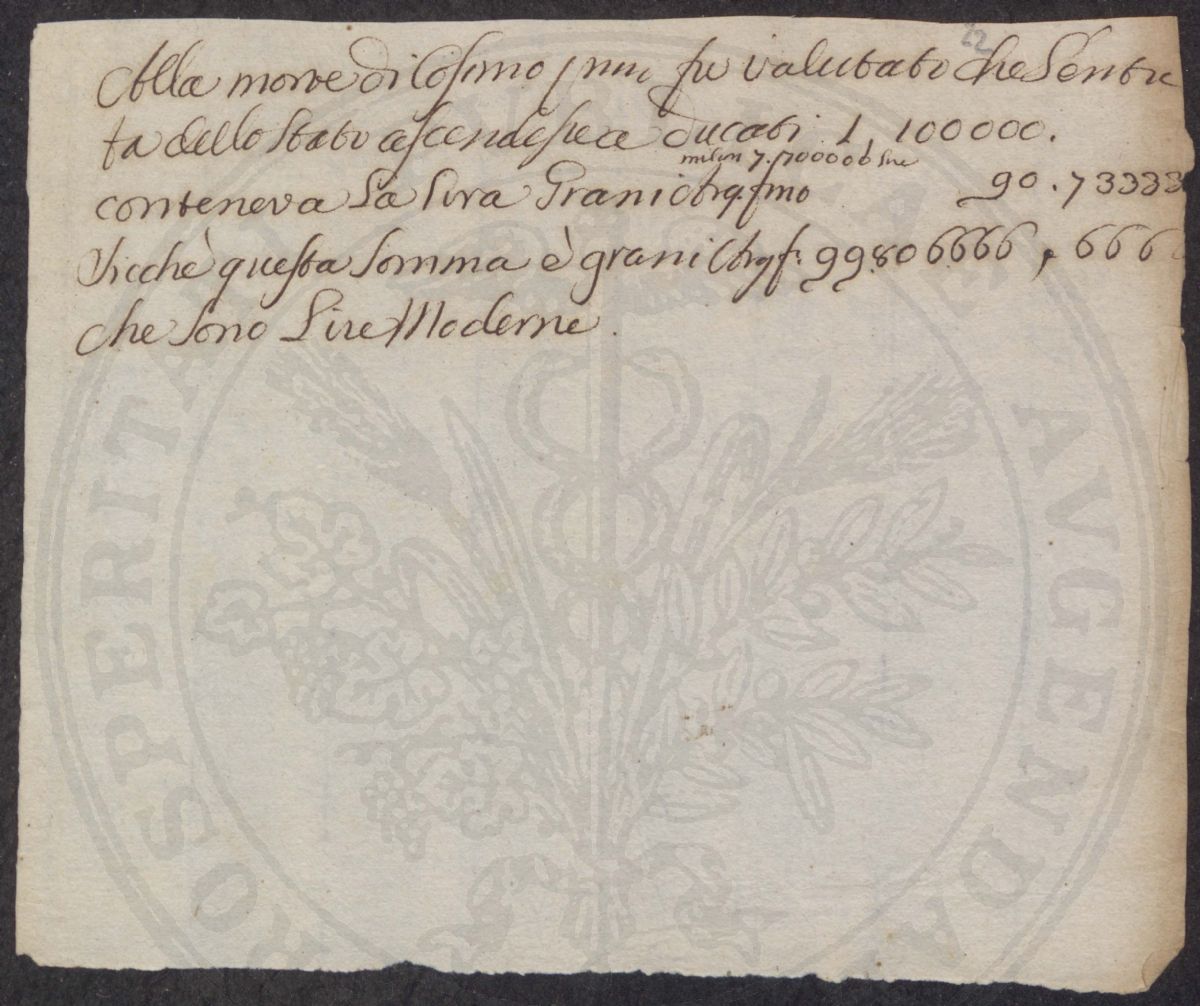 22
Alla morte di Cosimo primo fu valutato che l'entra
ta dello Stato ascendesse a ducati 1,100000.
milion 7.700000 lire
conteneva la lira Grani Arg. fino 90.73333
Sicchè questa somma è grani Arg. f: 99806666,666
che sono Lire Moderne.
PROSPERITATI AVGENDAE